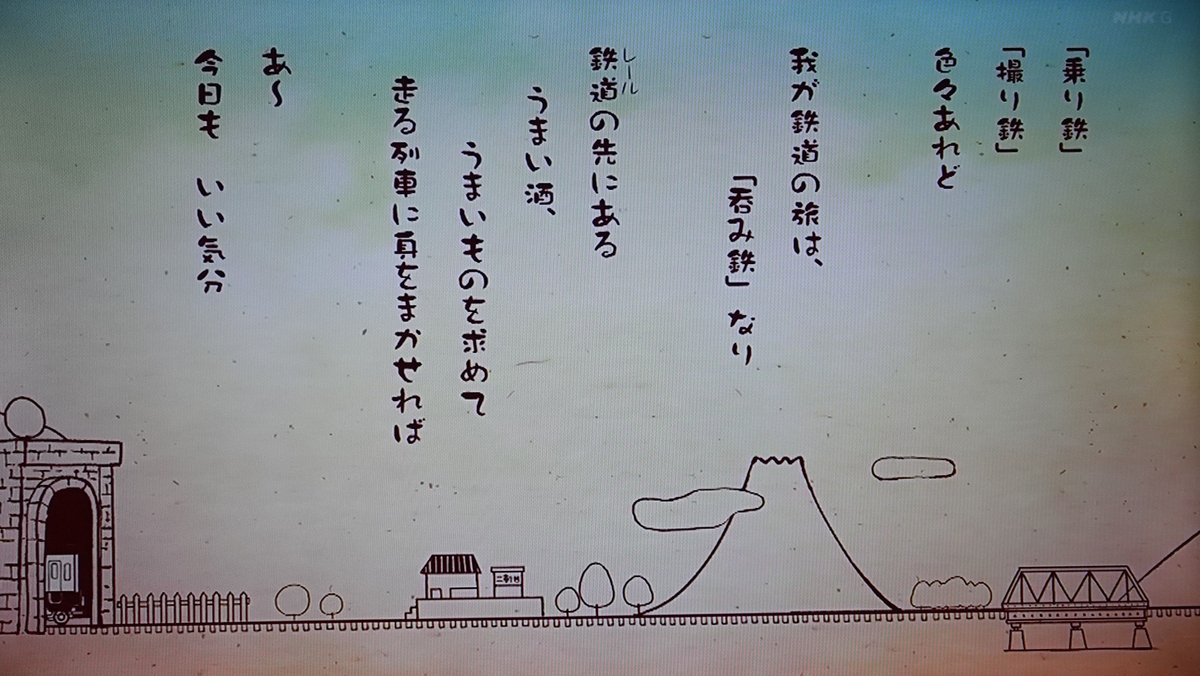 「乗り鉄」
「撮り鉄」
色々あれど
我が鉄道の旅は、
「呑み鉄」 なり
レール
鉄道の先にある
うまい酒、
うまいものを求めて
走る列車に身をまかせれば
あ〜
今日も いい気分
NHK G